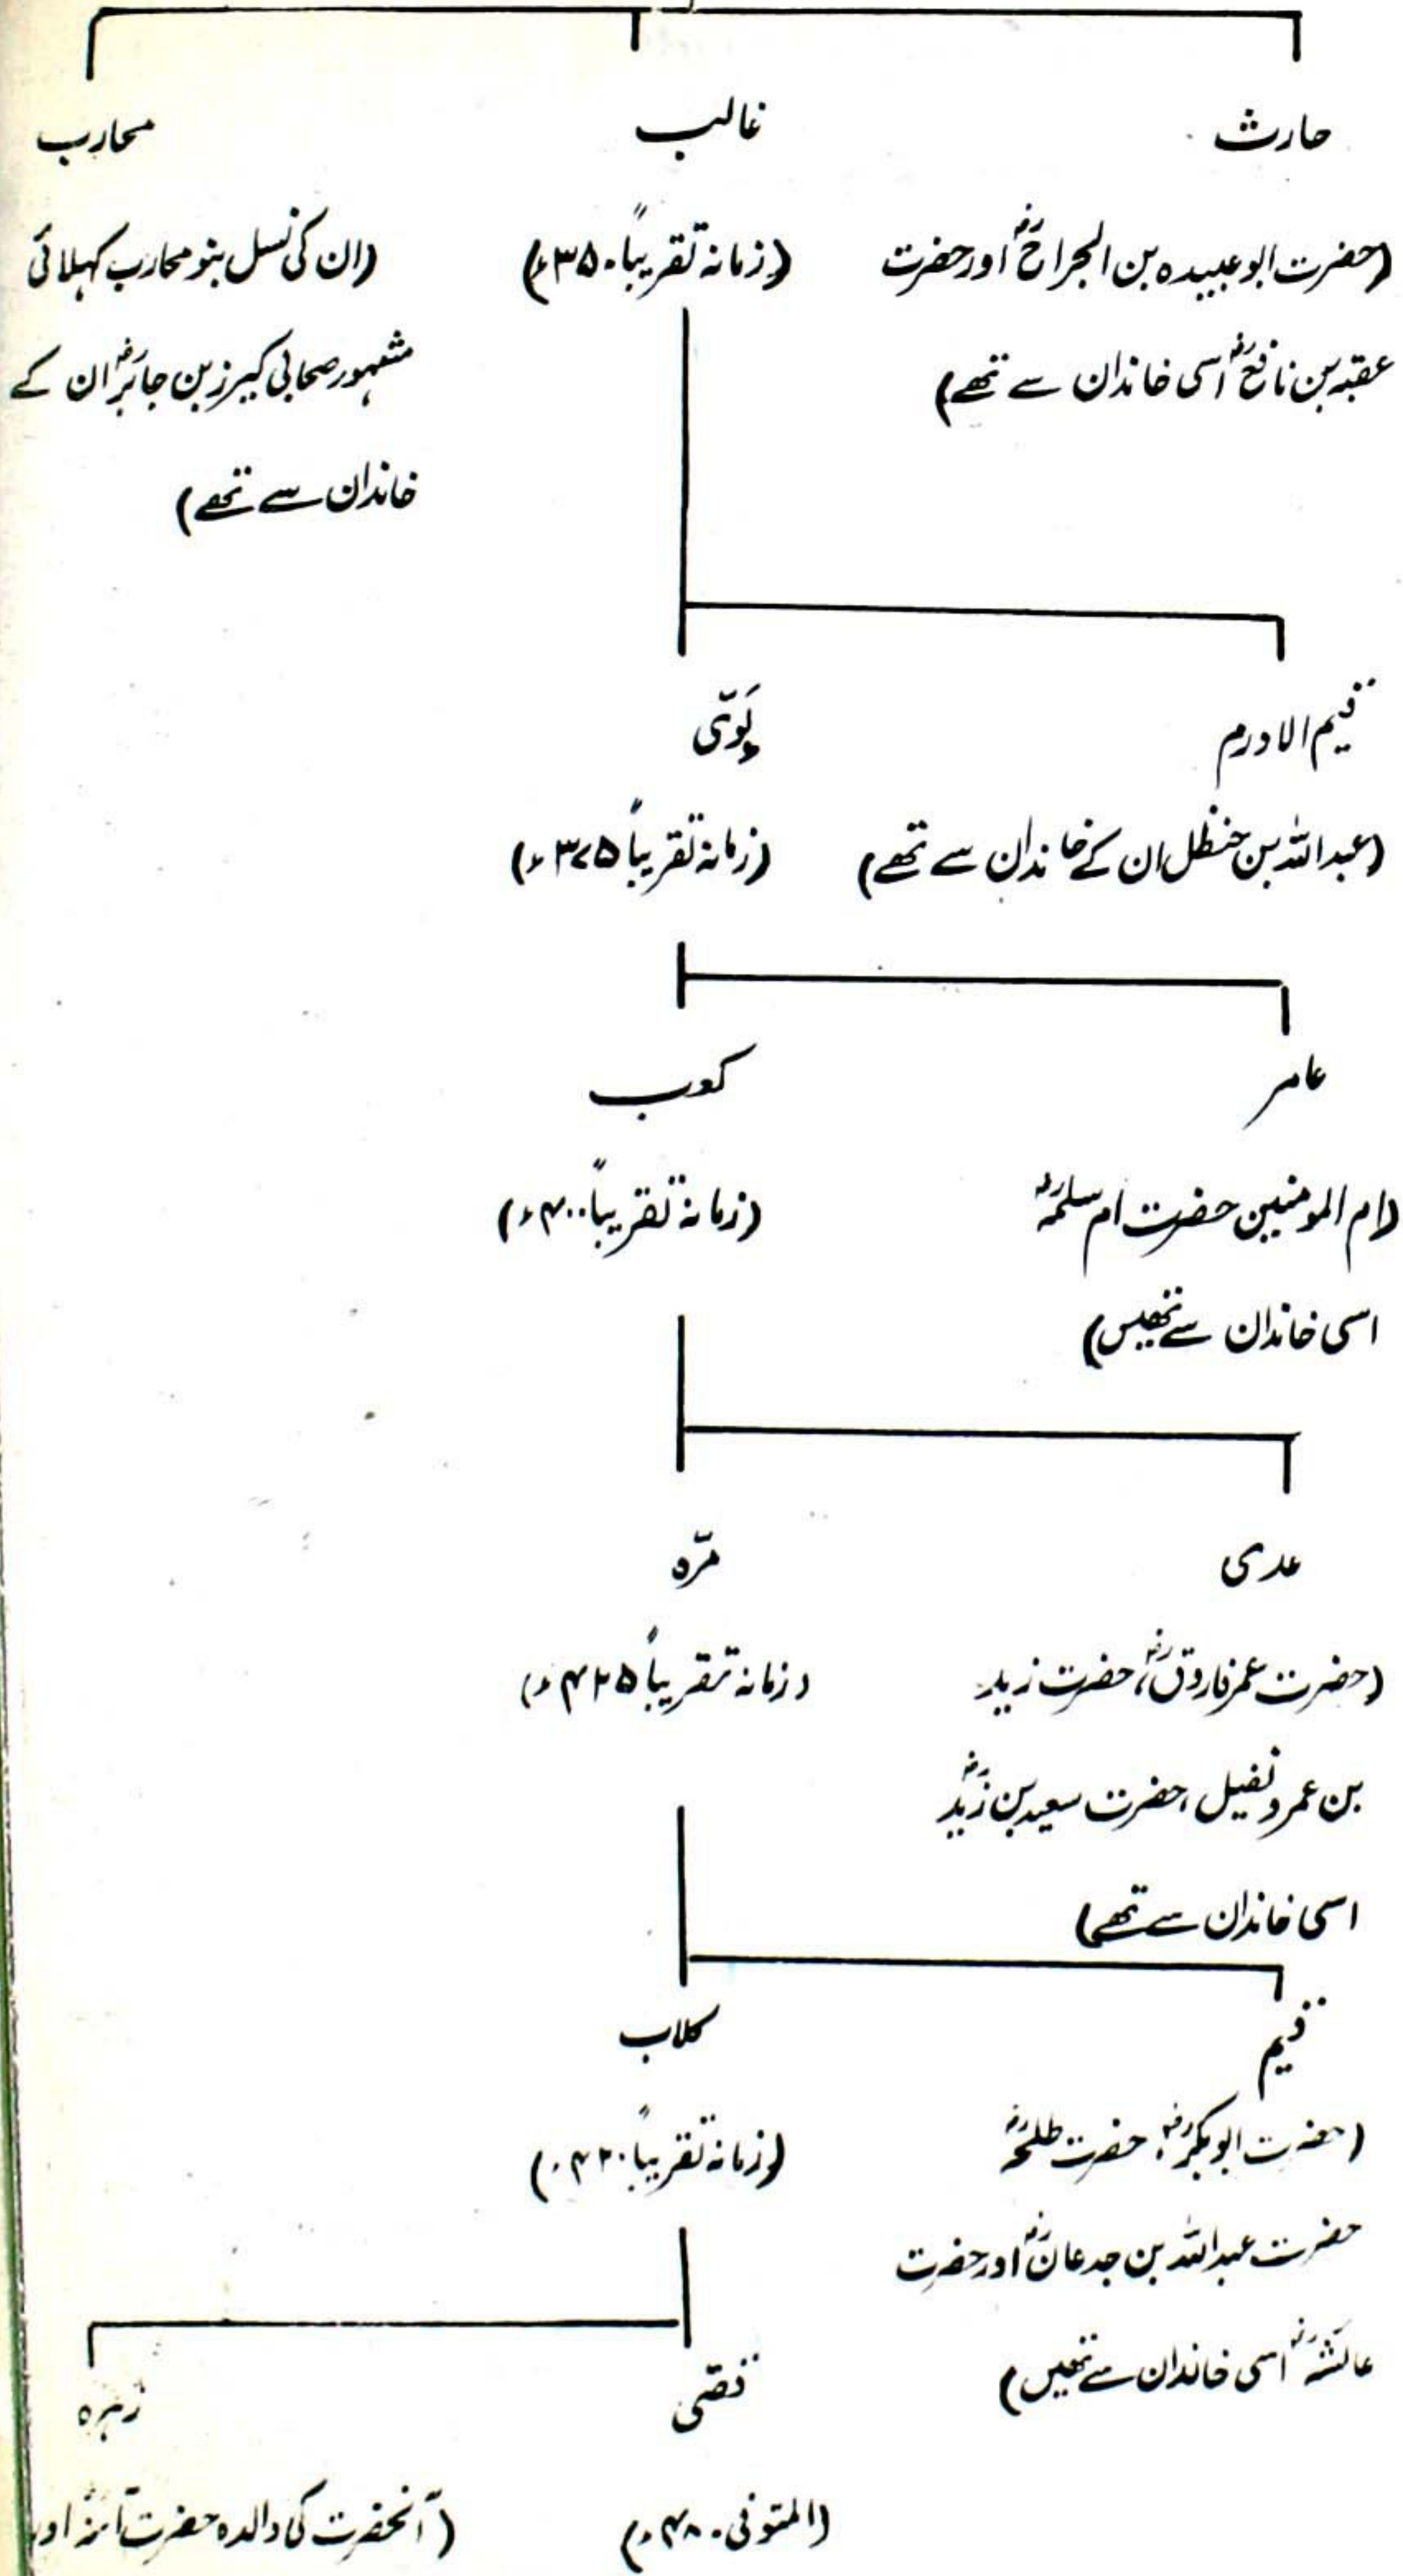 حارث
غالب
محارب
(حضرت ابو عبیدہ بن الجراحؓ اور حضرت
عقبہ بن نافعؓ اسی خاندان سے تھے)
(زمانہ تقریباً ۳۵۰ء)
(ان کی نسل بنو محارب کہلائی
مشہور صحابی کیرز بن جابرؓ ان کے
خاندان سے تھے)
تیم الادرم
لوَیّ
(عبداللہ بن حنظل ان کے خاندان سے تھے)
(زمانہ تقریباً ۳۷۵ء)
عامر
کعب
(ام المومنین حضرت ام سلمہؓ
اسی خاندان سے تھیں)
(زمانہ تقریباً ۴۰۰ء)
عدی
مرّہ
(حضرت عمر فاروقؓ، حضرت زید
بن عمرو نفیل، حضرت سعید بن زیدؓ
اسی خاندان سے تھے)
(زمانہ تقریباً ۴۲۵ء)
تیم
کلاب
(حضرت ابوبکرؓ، حضرت طلحہؓ
حضرت عبداللہ بن جدعانؓ اور حضرت
عائشہؓ اسی خاندان سے تھیں)
(زمانہ تقریباً ۴۲۰ء)
قصّی
زہرہ
(المتوفی ۴۸۰ء)
(آنحضرت کی والدہ حضرت آمنہؓ اور